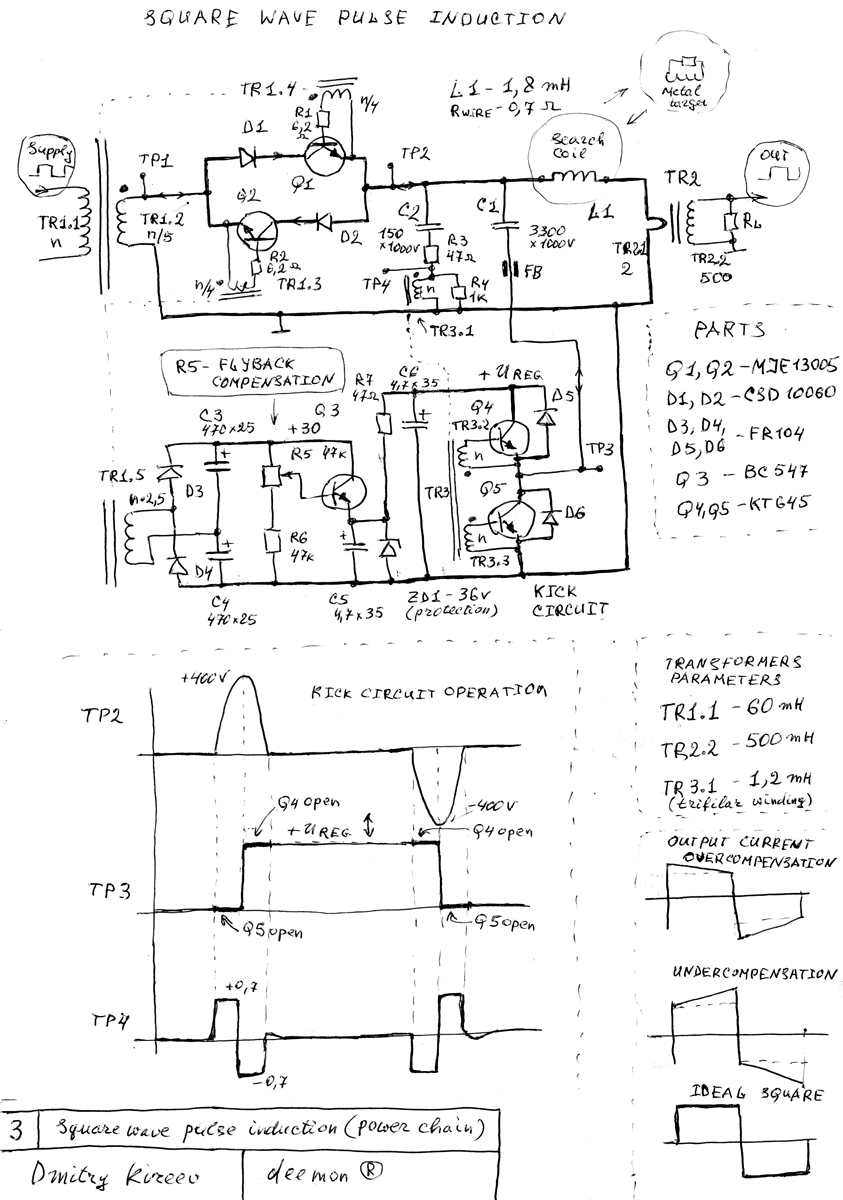 SQUARE WAVE PULSE INDUCTION
TR1.4
n/4
R1
6,2
Ω
D1
Q1
L1 - 1,8 mH
RWIRE - 0,7 Ω
Metal
target
Supply
TP1
TP2
Search
coil
L1
TR2
Out
TR1.1
n
TR1.2
n/5
Q2
D2
R2
6,2Ω
n/4
TR1.3
C2
150
×1000V
R3
47Ω
TP4
n
R4
1K
TR3.1
C1
3300
×1000V
FB
TR2.1
2
RL
TR2.2
500
PARTS
Q1, Q2 - MJE13005
D1, D2 - CSD10060
D3, D4,
D5, D6 - FR104
Q3 - BC547
Q4, Q5 - KT645
R5 - FLYBACK
COMPENSATION
C3
470×25
+30
Q3
R7
47Ω
C6
4,7×35
+UREG
D5
Q4
TR3.2
n
TP3
TR3
Q5
D6
n
TR3.3
TR1.5
n·2,5
D3
R5 47K
R6
47K
D4
C4
470×25
C5
4,7×35
ZD1 - 36V
(protection)
KICK
CIRCUIT
KICK CIRCUIT OPERATION
+400V
TP2
-400V
Q4 open
+UREG
Q4 open
TP3
Q5 open
Q5 open
+0,7
TP4
-0,7
TRANSFORMERS
PARAMETERS
TR1.1 - 60 mH
TR2.2 - 500 mH
TR3.1 - 1,2 mH
(trifilar winding)
OUTPUT CURRENT
OVERCOMPENSATION
UNDERCOMPENSATION
IDEAL SQUARE
3 Square wave pulse induction (power chain)
Dmitry Kireev deemon ®